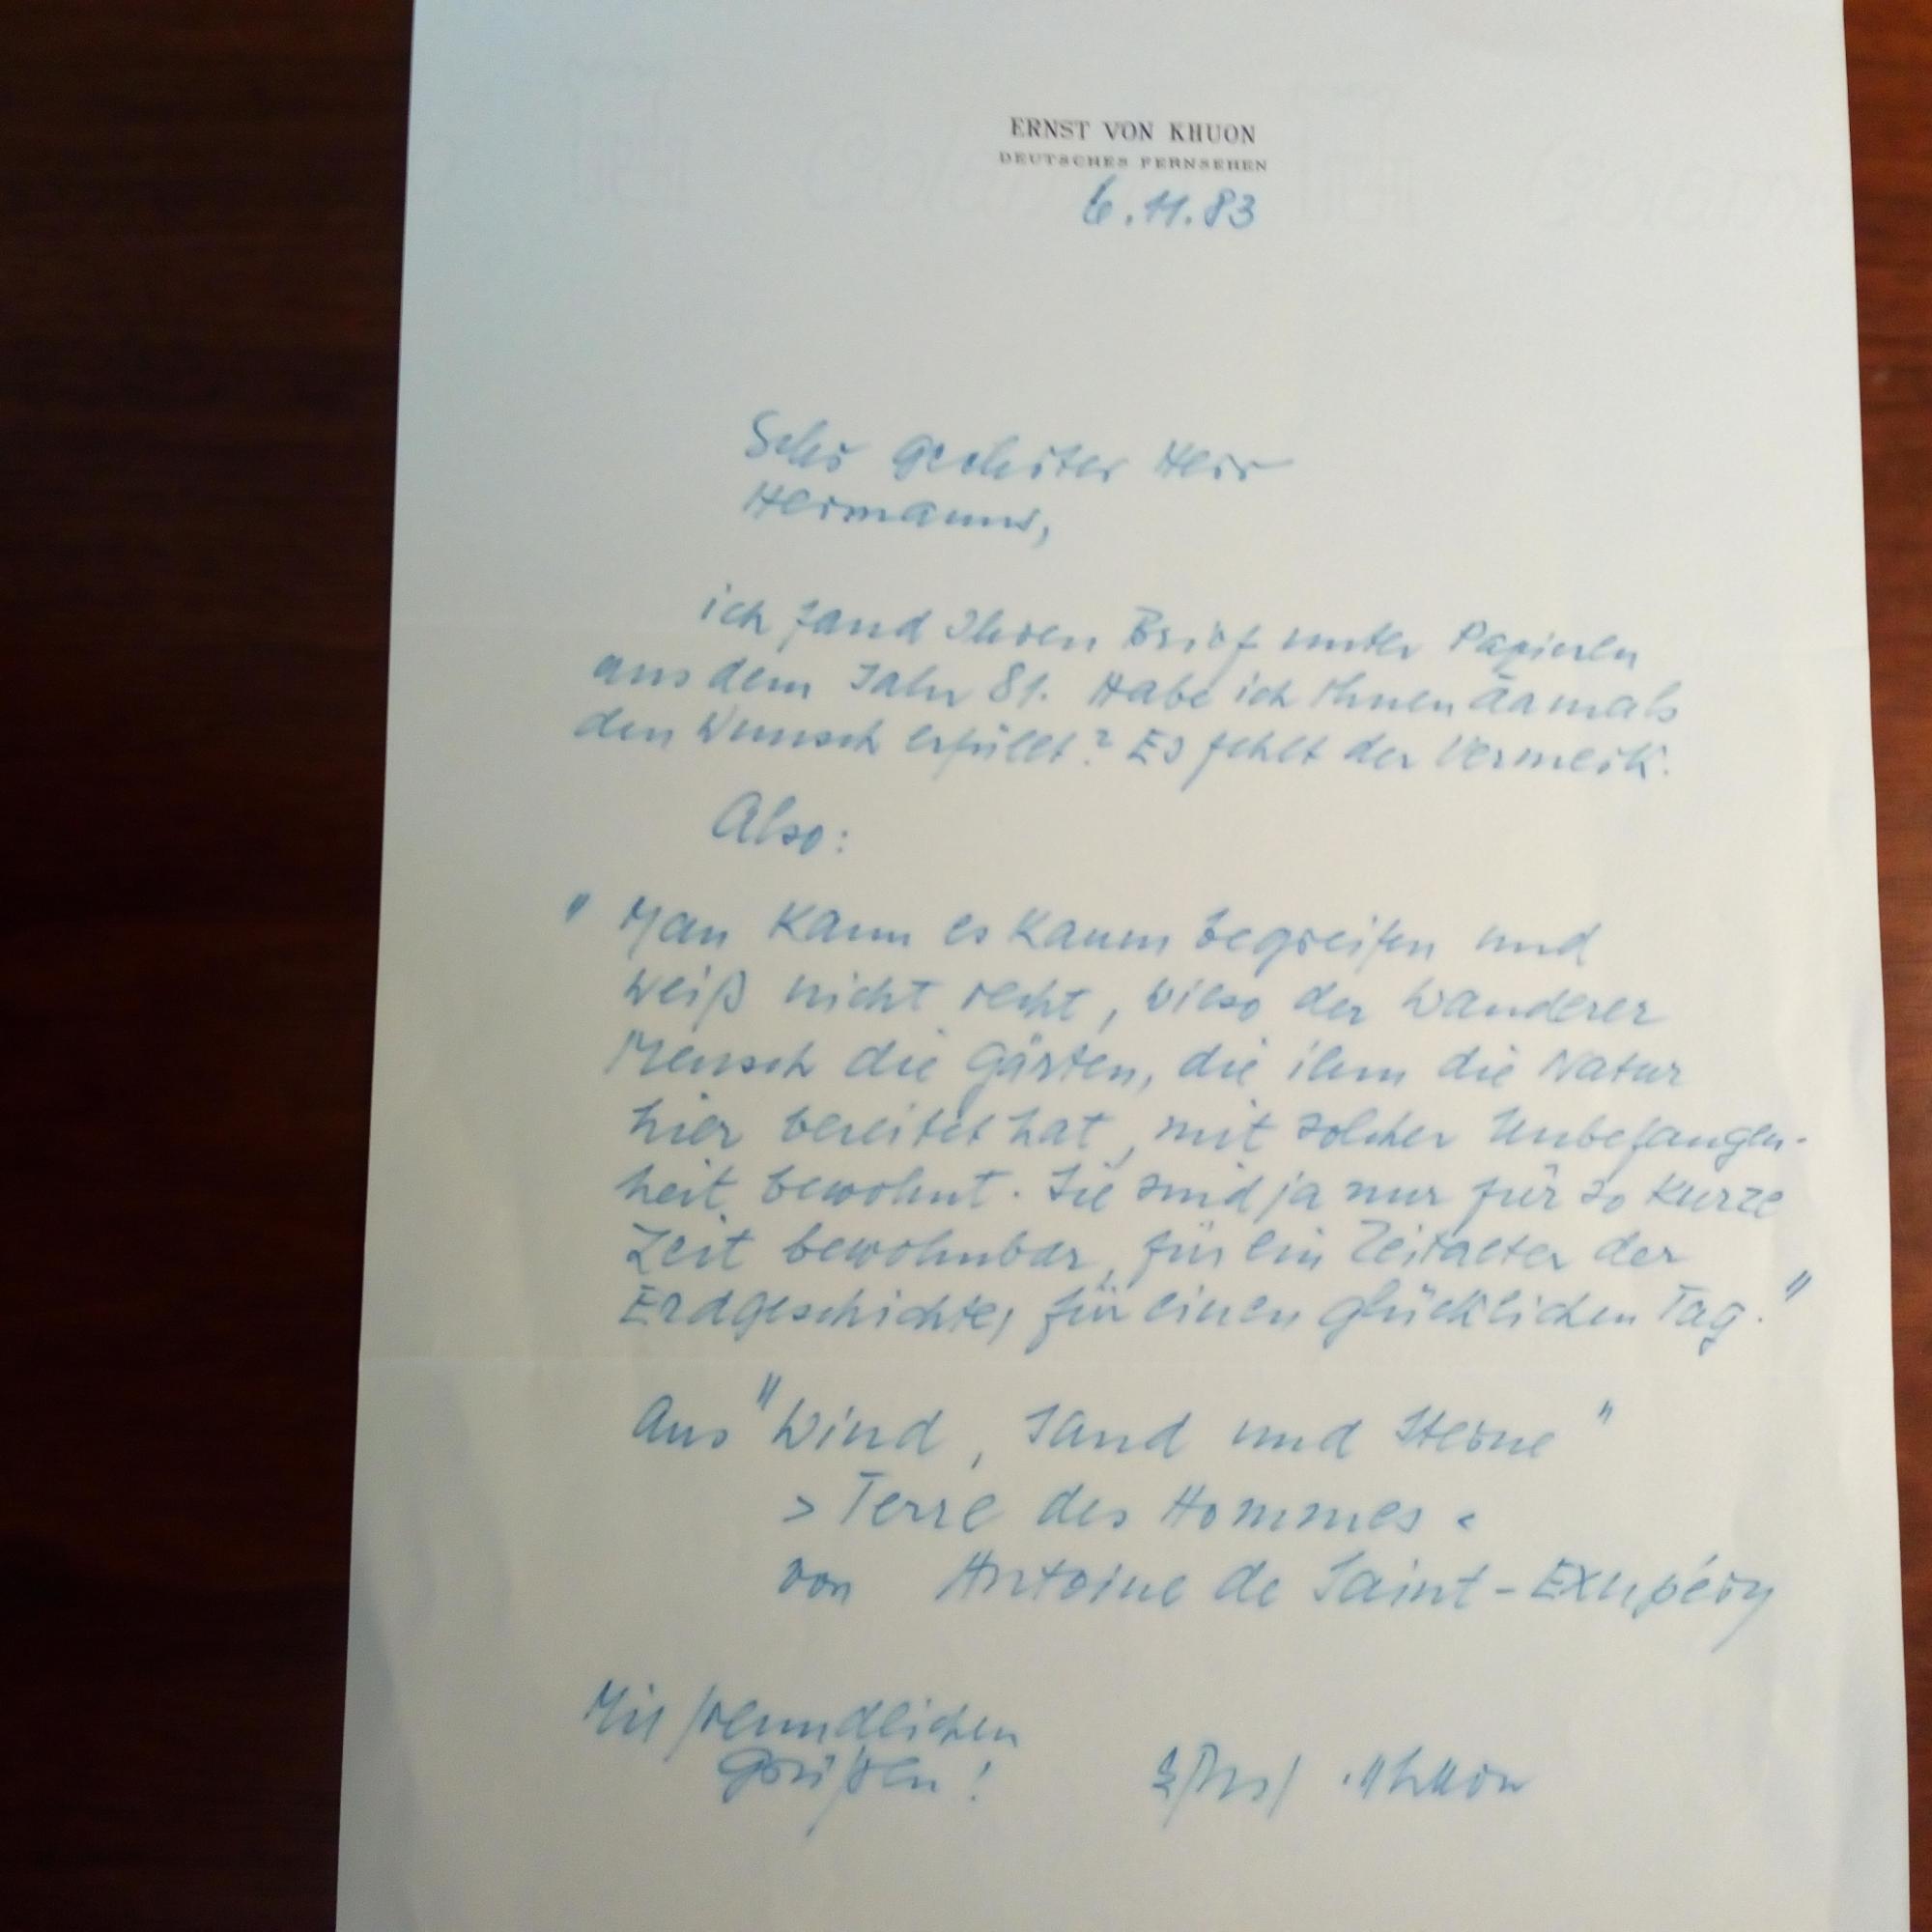 ERNST VON KHUON
DEUTSCHES FERNSEHEN
6.11.83
Sehr geehrter Herr
Hermanns,
ich fand Ihren Brief unter Papieren
aus dem Jahr 81. Habe ich Ihnen damals
den Wunsch erfüllt? Es fehlt der Vermerk.
Also:
" Man kann es kaum begreifen und
weiß nicht recht, wieso der Wanderer
Mensch die Gärten, die ihm die Natur
hier bereitet hat, mit solcher Unbefangen-
heit bewohnt. Sie sind ja nur für so kurze
Zeit bewohnbar, für ein Zeitalter der
Erdgeschichte, für einen glücklichen Tag."
Aus "Wind, Sand und Sterne"
> Terre des Hommes <
von Antoine de Saint-Exupéry
Mit freundlichen
Grüßen! Ernst v. Khuon